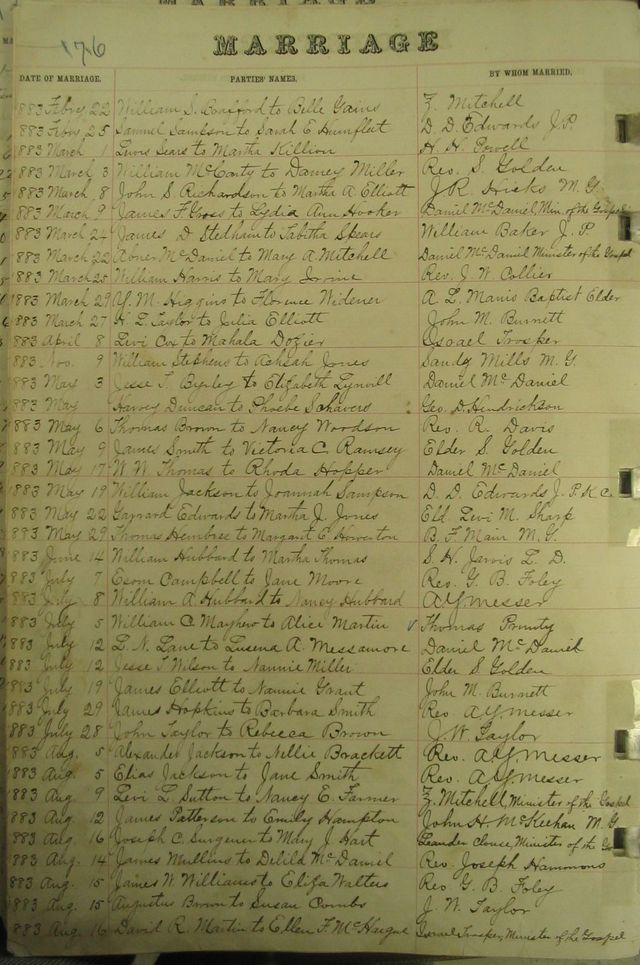 MARRIAGE
176
MARRIAGE
DATE OF MARRIAGE. PARTIES' NAMES. BY WHOM MARRIED.
1883 Febry 22 William S. Brafford to Belle Gains Z. Mitchell
1883 Febry 25 Samuel Sampson to Sarah E. Humfleet D. D. Edwards J. P.
1883 March 1 Lewis Sears to Martha Killion H. H. Powell
1883 March 3 William McCarty to Damey Miller Rev. S. Golden
1883 March 8 John S. Richardson to Martha A. Elliott J. R. Hicks M. G.
1883 March 9 James F. Gross to Lydia Ann Hooker Daniel McDaniel, Min. of the Gospel
1883 March 24 James D Stedham to Tabitha Spears William Baker J. P
1883 March 22 Abner McDaniel to Mary A. Mitchell Daniel McDaniel Minister of the Gospel
1883 March 25 William Harris to Mary Irvine Rev. J. W. Collier
1883 March 29 M. Higgins to Florence Widener A. L. Manis Baptist Elder
1883 March 27 H. L. Taylor to Julia Elliott John M. Burnett
1883 April 8 Levi Cox to Mahala Dozier Israel Trosper
1883 Nov. 9 William Stephens to Achsah Jones Sandy Mills M. G.
1883 May 3 Jesse T. to Elizabeth Lynvill Daniel McDaniel
1883 May Harvey Duncan to Phoebe Schavers Geo. D. Hendrickson
1883 May 6 Thomas Brown to Nancy Woodson Rev. R. Davis
1883 May 9 James Smith to Victoria C. Ramsey Elder S. Golden
1883 May 17 W. W. Thomas to Rhoda Hopper Daniel McDaniel
1883 May 19 William Jackson to Joannah Sampson D. D. Edwards J. P. K. C.
1883 May 22 Edwards to Martha J. Jones Eld. Levi M. Sharp
1883 May 29 Thomas Hembree to Margaret E. Hoverton B. F. Main M. G.
1883 June 14 William Hubbard to Martha Thomas S. H. Jarvis L. D.
1883 July 7 Esom Campbell to Jane Moore Rev. G. B. Foley
1883 July 8 William A. Hubbard to Nancy Hubbard A. Y. Messer
1883 July 5 William C. Mayhew to Alice Martin Thomas
1883 July 12 L. N. Lane to Lusena A. Messamore Daniel McDaniel
1883 July 12 Jesse T Wilson to Nannie Miller Elder S. Golden
1883 July 19 James Elliott to Nannie Grant John M. Burnett
1883 July 29 James Hopkins to Barbara Smith Rev A. Y. Messer
1883 July 28 John Taylor to Rebecca Brown J. W. Taylor
1883 Aug. 5 Alexander Jackson to Nellie Brackett Rev. A. Y. Messer
1883 Aug. 5 Elias Jackson to Jane Smith Rev. A. Y. Messer
1883 Aug. 9 Levi L. Sutton to Nancy E. Farmer Z. Mitchell, Minister of the Gospel
1883 Aug. 12 James Patterson to Emily Hampton John H. McKeehan M. G
1883 Aug. 16 Joseph C. Surgener to Mary J. Hart Leander Clouse, Minister of the Go
1883 Aug. 14 James Mullins to Delila McDaniel Rev. Joseph Hammons
1883 Aug. 15 James W. Williams to Eliza Walters Rev G. B. Foley
1883 Aug. 15 Augustus Brown to Susan Combs J. W. Taylor
1883 Aug. 16 David R. Martin to Ellen F. McHargue Israel Trosper, Minister of the Gospel